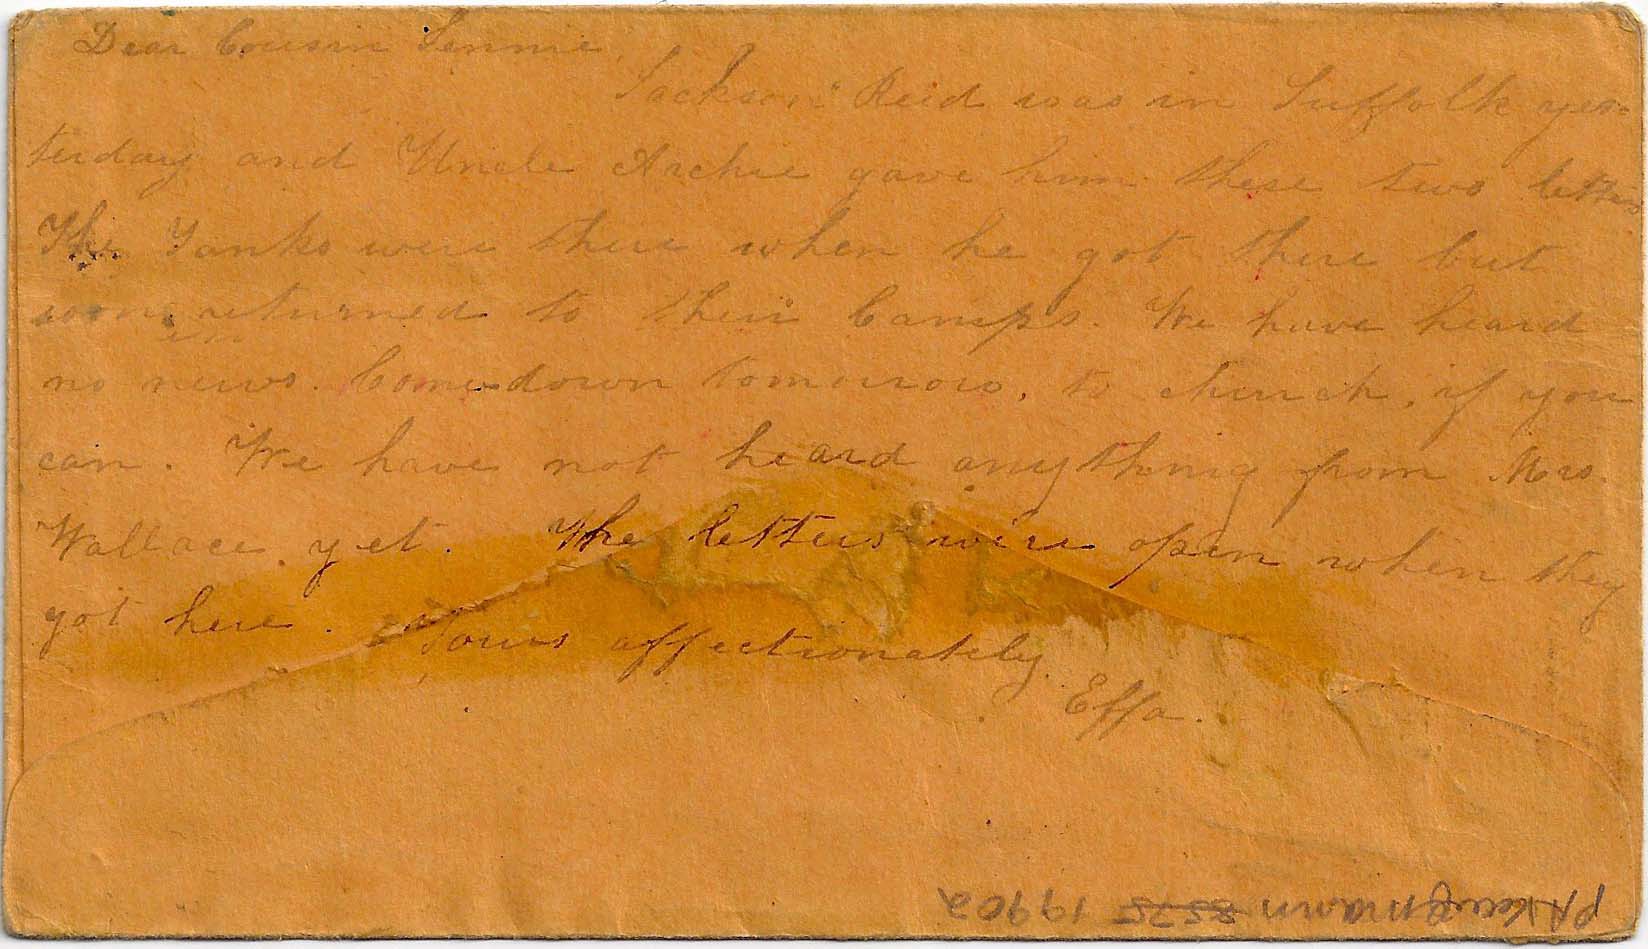 Dear Cousin Jennie,
Jackson Reid was in Suffolk yes-
terday and Uncle Archie gave him these two letters
The Yanks were there when he got there but
soon returned to their Camps. We have heard
no news. Come down tomorrow, to church, if you
can. We have not heard anything from Mrs.
Wallace yet. The letters were open when they
got here. Yours affectionately
Effa.
1990a